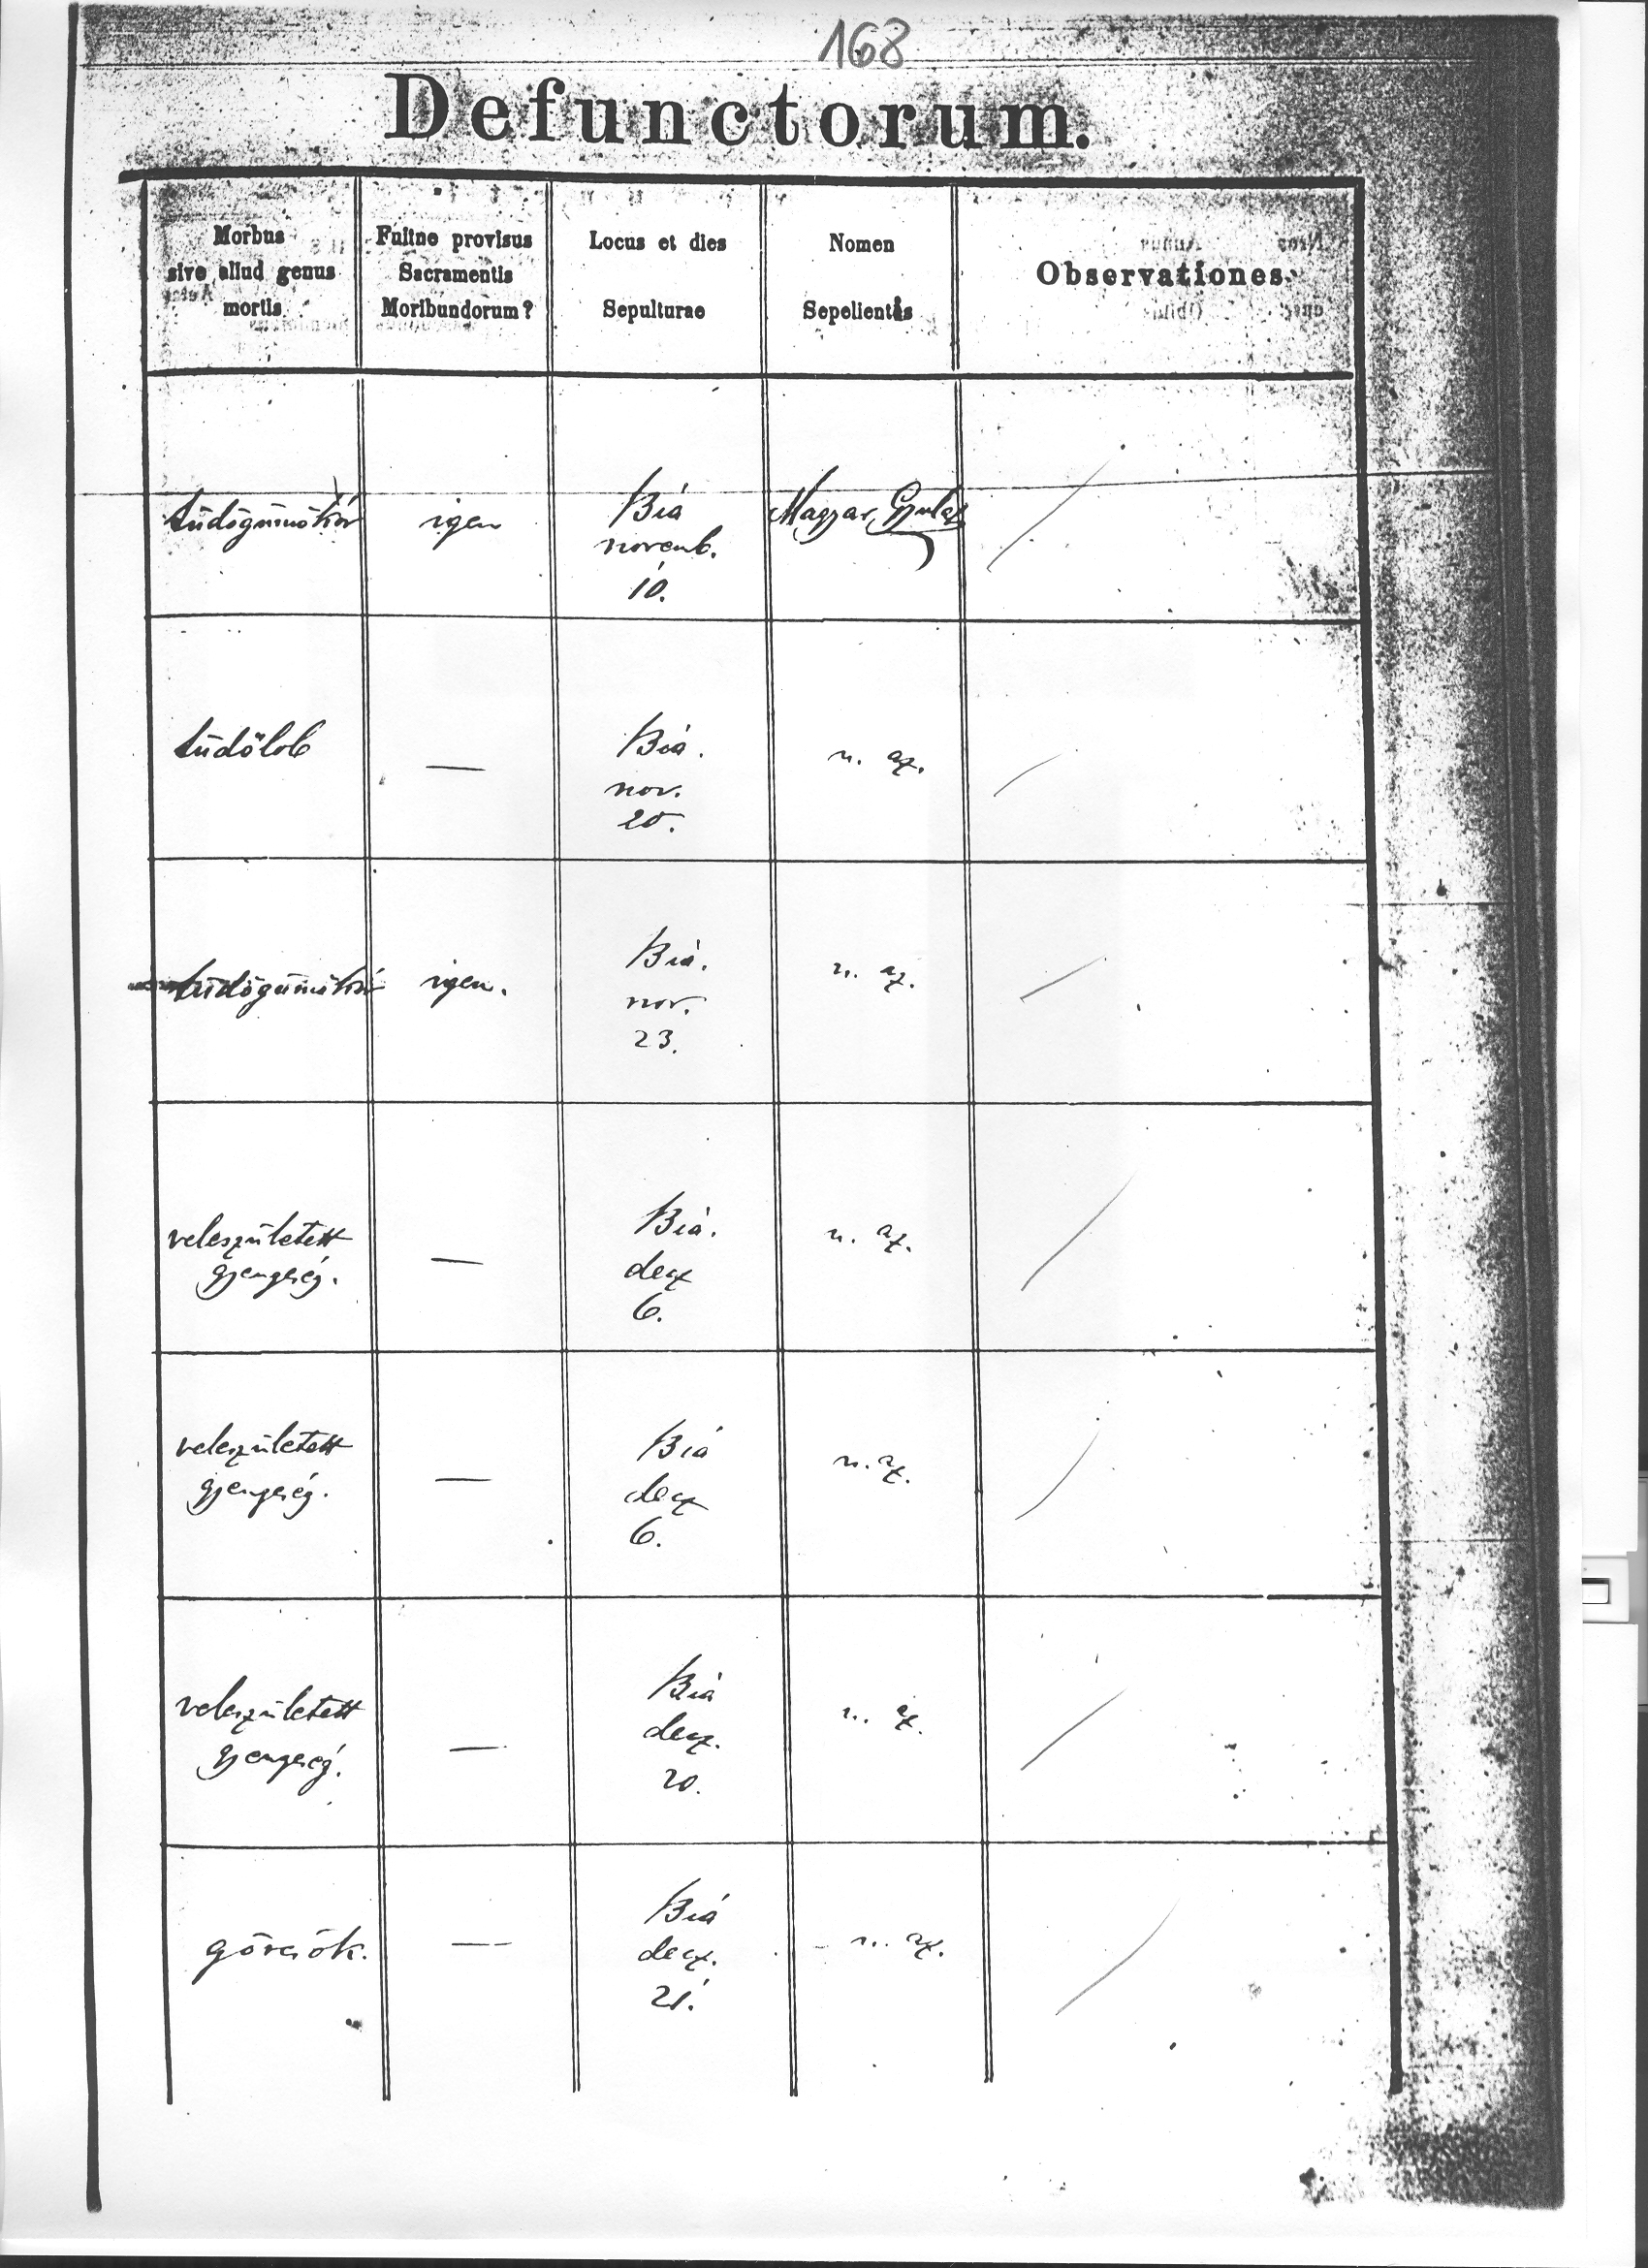 168
Defunctorum.
Morbus
sive aliud genus
mortis
Fuitne provisus
Sacramentis
Moribundorum?
Locus et dies
Sepulturae
Nomen
Sepelientis
Observationes
tüdőgümőkór
igen
Biá
novemb.
10.
Magyar Gyula
tüdőlob
—
Biá.
nov.
20.
u. az.
tüdőgümőkór
igen.
Biá.
nov.
23.
u. az.
veleszületett
gyengeség.
—
Biá.
decz
6.
u. az.
veleszületett
gyengeség.
—
Biá
decz
6.
u. az.
veleszületett
gyengeség.
—
Biá
decz.
20.
u. az.
görcsök.
—
Biá
decz.
21.
u. az.